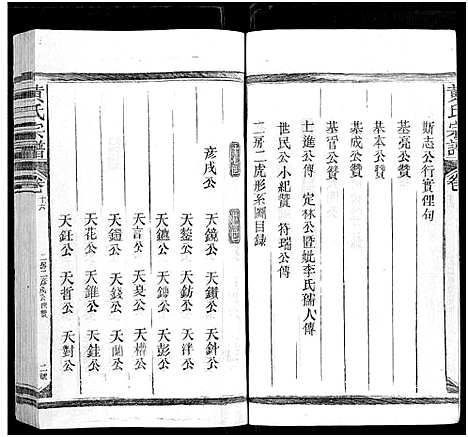 黃氏宗譜
斯志公行實俚句
基亮公贊
基本公贊
基成公贊
基晉公贊
士進公傳 定林公暨妣李氏孺人傳
世民公小紀贊 符瑞公傳
二房二虎形系圖目錄
彥戌公
天鏡公 天鑽公 天針公
天鏊公 天鈁公 天泮公
天鑣公 天鑄公 天彭公
天言公 天旻公 天權公
天鎧公 天錢公 天蘭公
天花公 天錐公 天銈公
天鈺公 天哲公 天對公
黃氏宗譜
卷
十六
二號